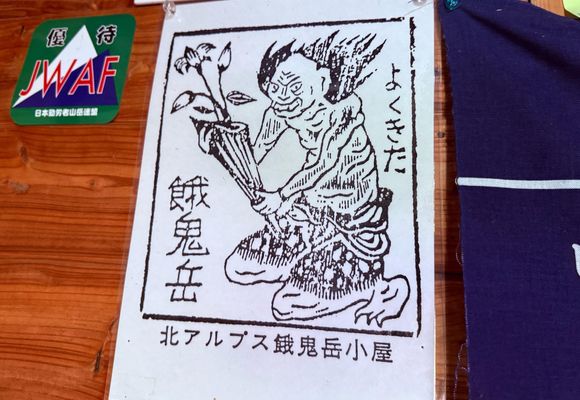 優待
JWAF
日本勤労者山岳連盟
よくきた
餓鬼岳
北アルプス餓鬼岳小屋